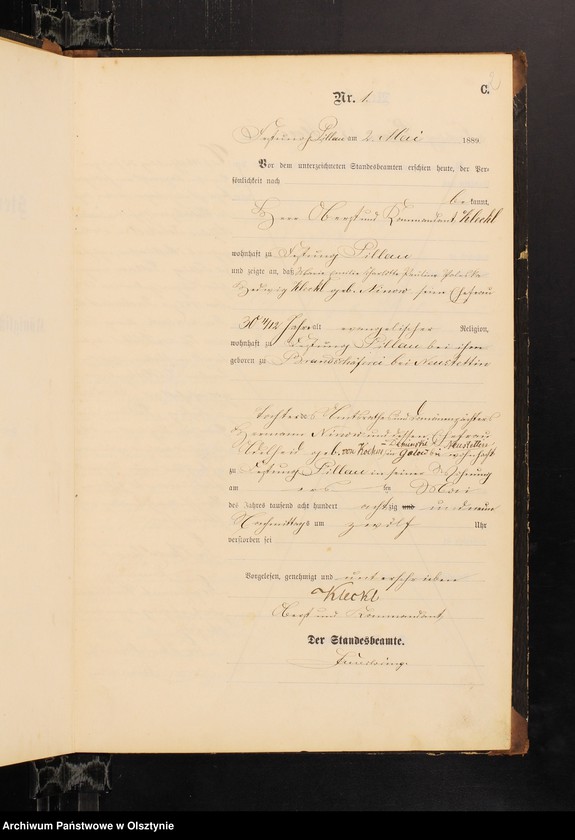 C.
2
Nr. 1.
Festung Pillau am 2. Mai 1889
Vor dem unterzeichneten Standesbeamten erschien heute, der Per-
sönlichkeit nach
bekannt,
Herr Oberst und Kommandant Kleckl
wohnhaft zu Festung Pillau
und zeigte an, daß Marie Charlotte Pauline
Hedwig Kleckl geb. Ninow seine Ehefrau
alt evangelischer Religion,
wohnhaft zu Festung Pillau bei ihm
geboren zu bei Neustettin
Tochter des Amtsraths und Domänenpächters
Hermann Ninow und dessen Ehefrau
Adelheid geb. von wohnhaft
zu Festung Pillau in seiner Wohnung
am ten Mai
des Jahres tausend acht hundert achtzig und und neun
Nachmittags um zwölf Uhr
verstorben sei
Vorgelesen, genehmigt und unterschrieben
Kleckl
Oberst und Kommandant
Der Standesbeamte.
Archiwum Państwowe w Olsztynie